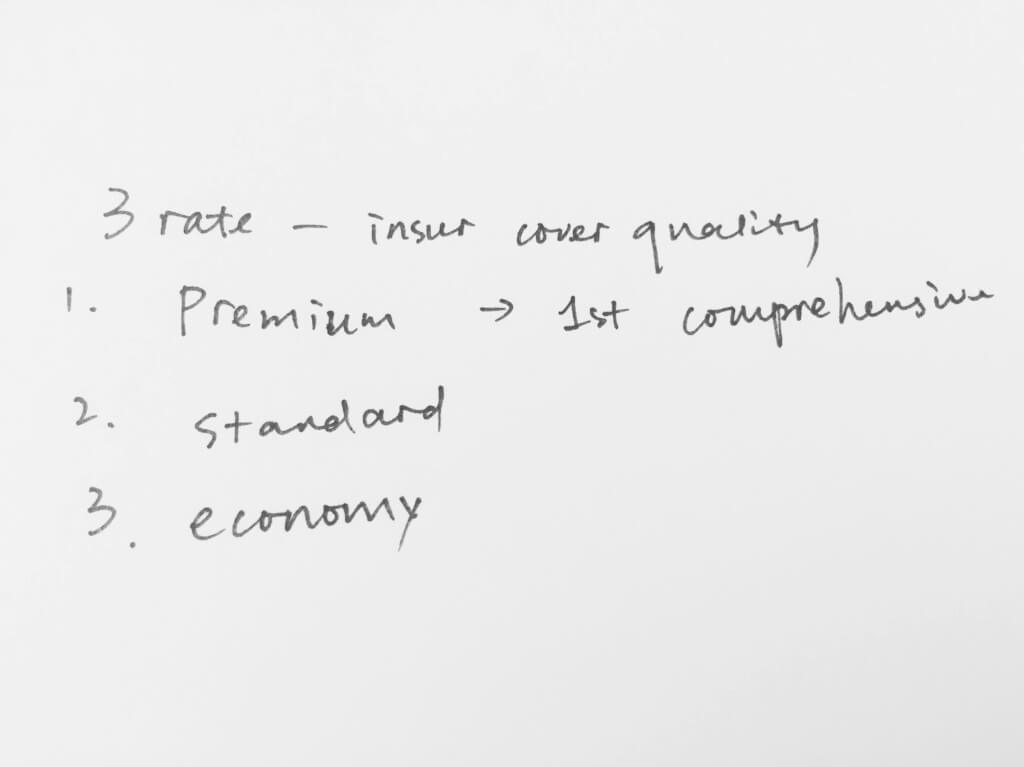 3 rate – insur cover quality
1. Premium → 1st comprehensive
2. standard
3. economy